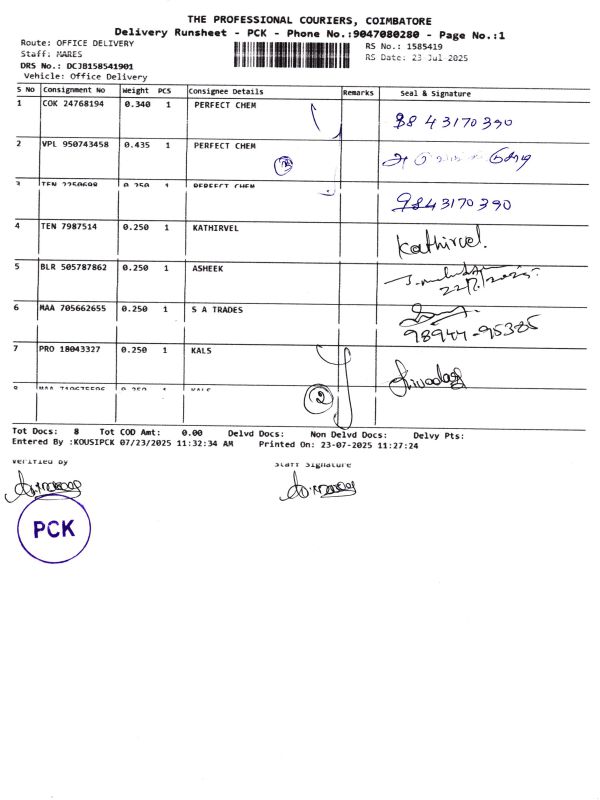 THE PROFESSIONAL COURIERS, COIMBATORE
Delivery Runsheet - PCK - Phone No.:9047080280 - Page No.:1
Route: OFFICE DELIVERY
RS No.: 1585419
Staff: MARES
RS Date: 23-Jul-2025
DRS No.: DCJB158541901
Vehicle: Office Delivery
S No Consignment No Weight PCS Consignee Details Remarks Seal & Signature
1 COK 24768194 0.340 1 PERFECT CHEM
9843170390
2 VPL 950743458 0.435 1 PERFECT CHEM
2
3 TEN 2250698 0.250 1 PERFECT CHEM
9843170390
4 TEN 7987514 0.250 1 KATHIRVEL
Kathirvel.
5 BLR 505787862 0.250 1 ASHEEK
6 MAA 705662655 0.250 1 S A TRADES
98944-95385
7 PRO 18043327 0.250 1 KALS
8 MAA 0.250 1 KALS
2
Tot Docs: 8 Tot COD Amt: 0.00 Delvd Docs: Non Delvd Docs: Delvy Pts:
Entered By :KOUSIPCK 07/23/2025 11:32:34 AM Printed On: 23-07-2025 11:27:24
Verified By Staff Signature
PCK